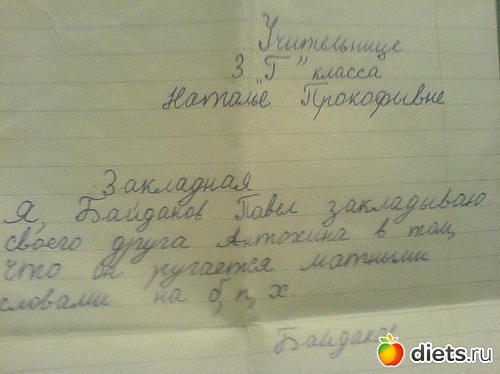 Учительнице
3 "Г" класса
Наталье Прокофивне
Закладная
Я, Байданов Павел закладываю
своего друга Антохина в том,
что он ругается матными
словами на б, п, х.
Байданов
diets.ru